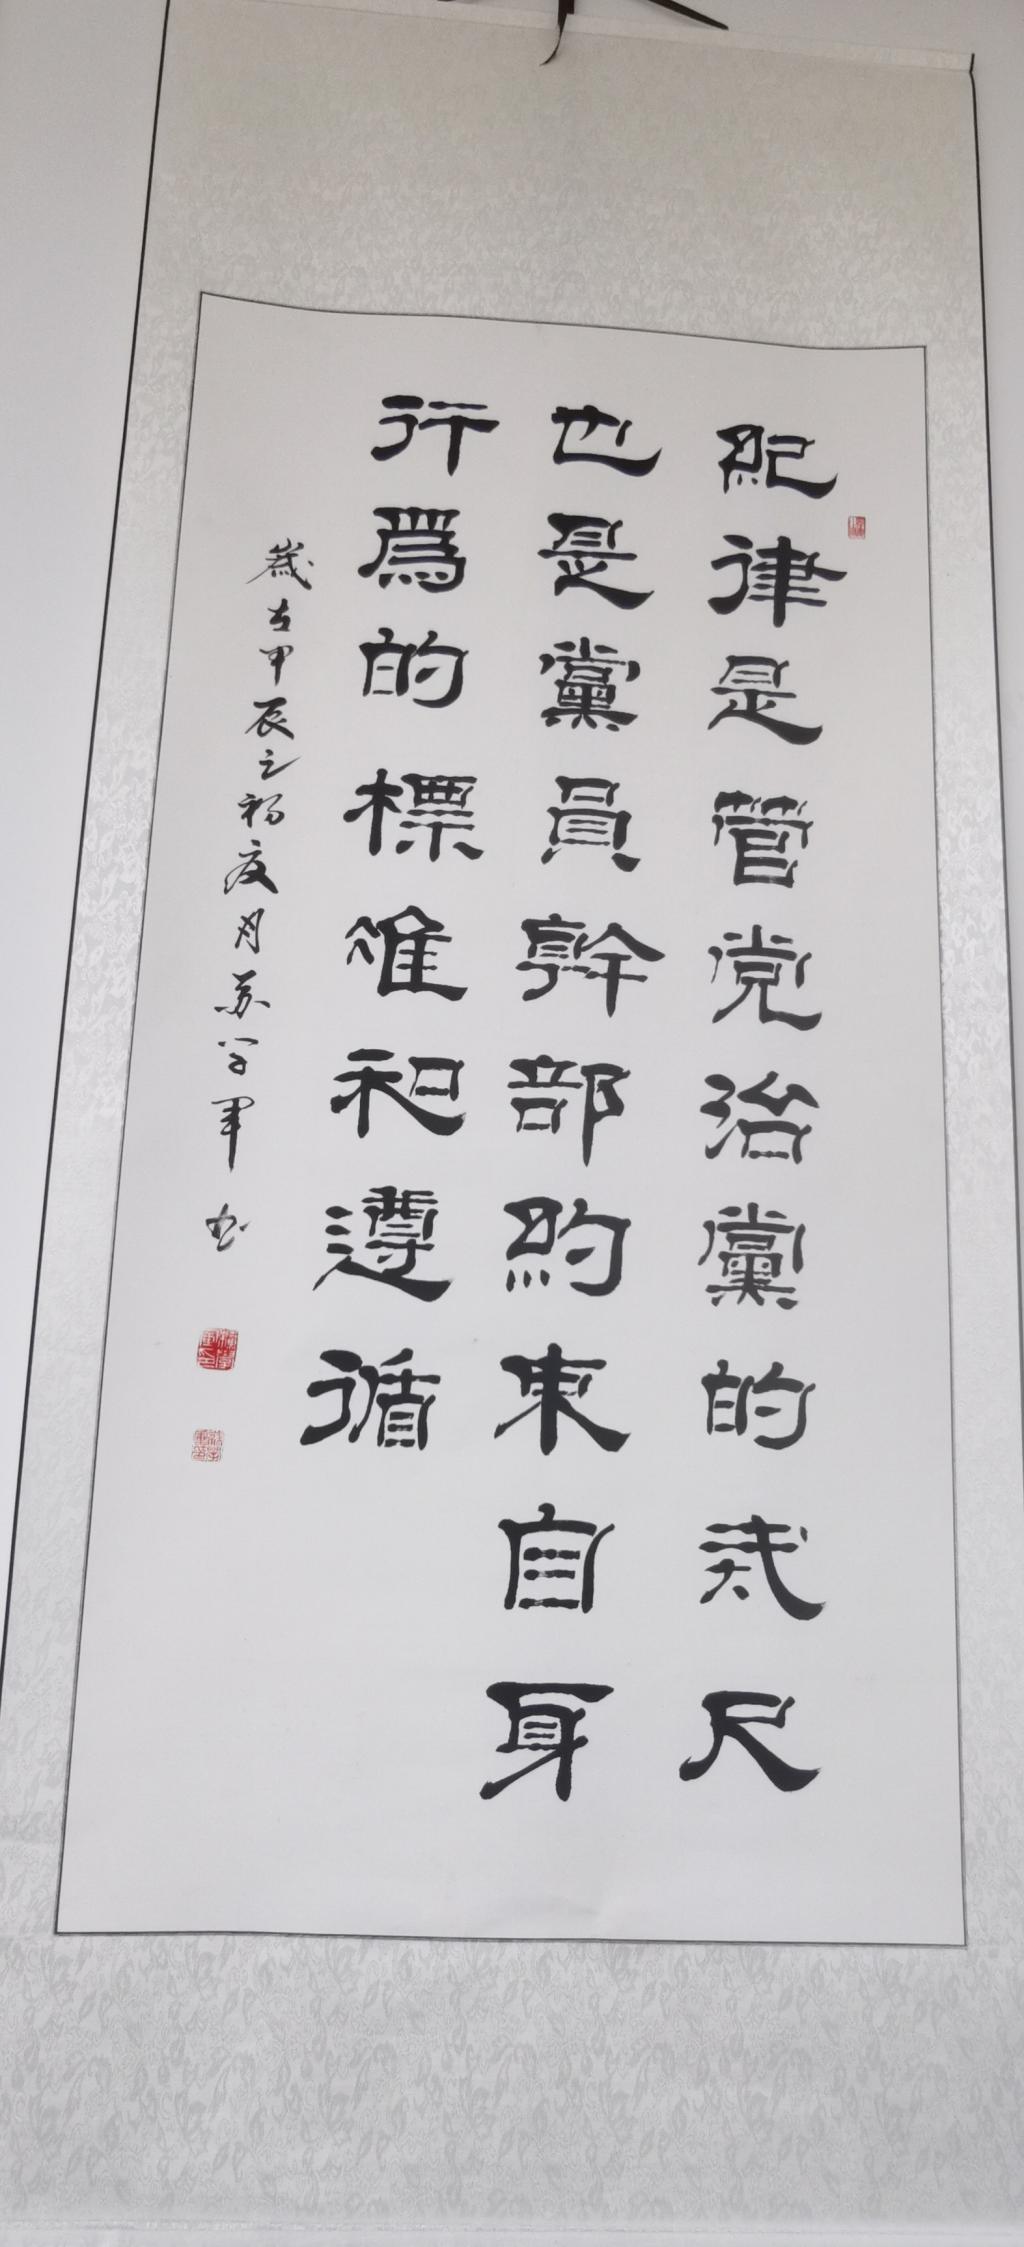 紀律是管党治黨的戒尺
也是黨員幹部約束自身
行爲的標准和遵循
歲在甲辰之初夏月苏学军书